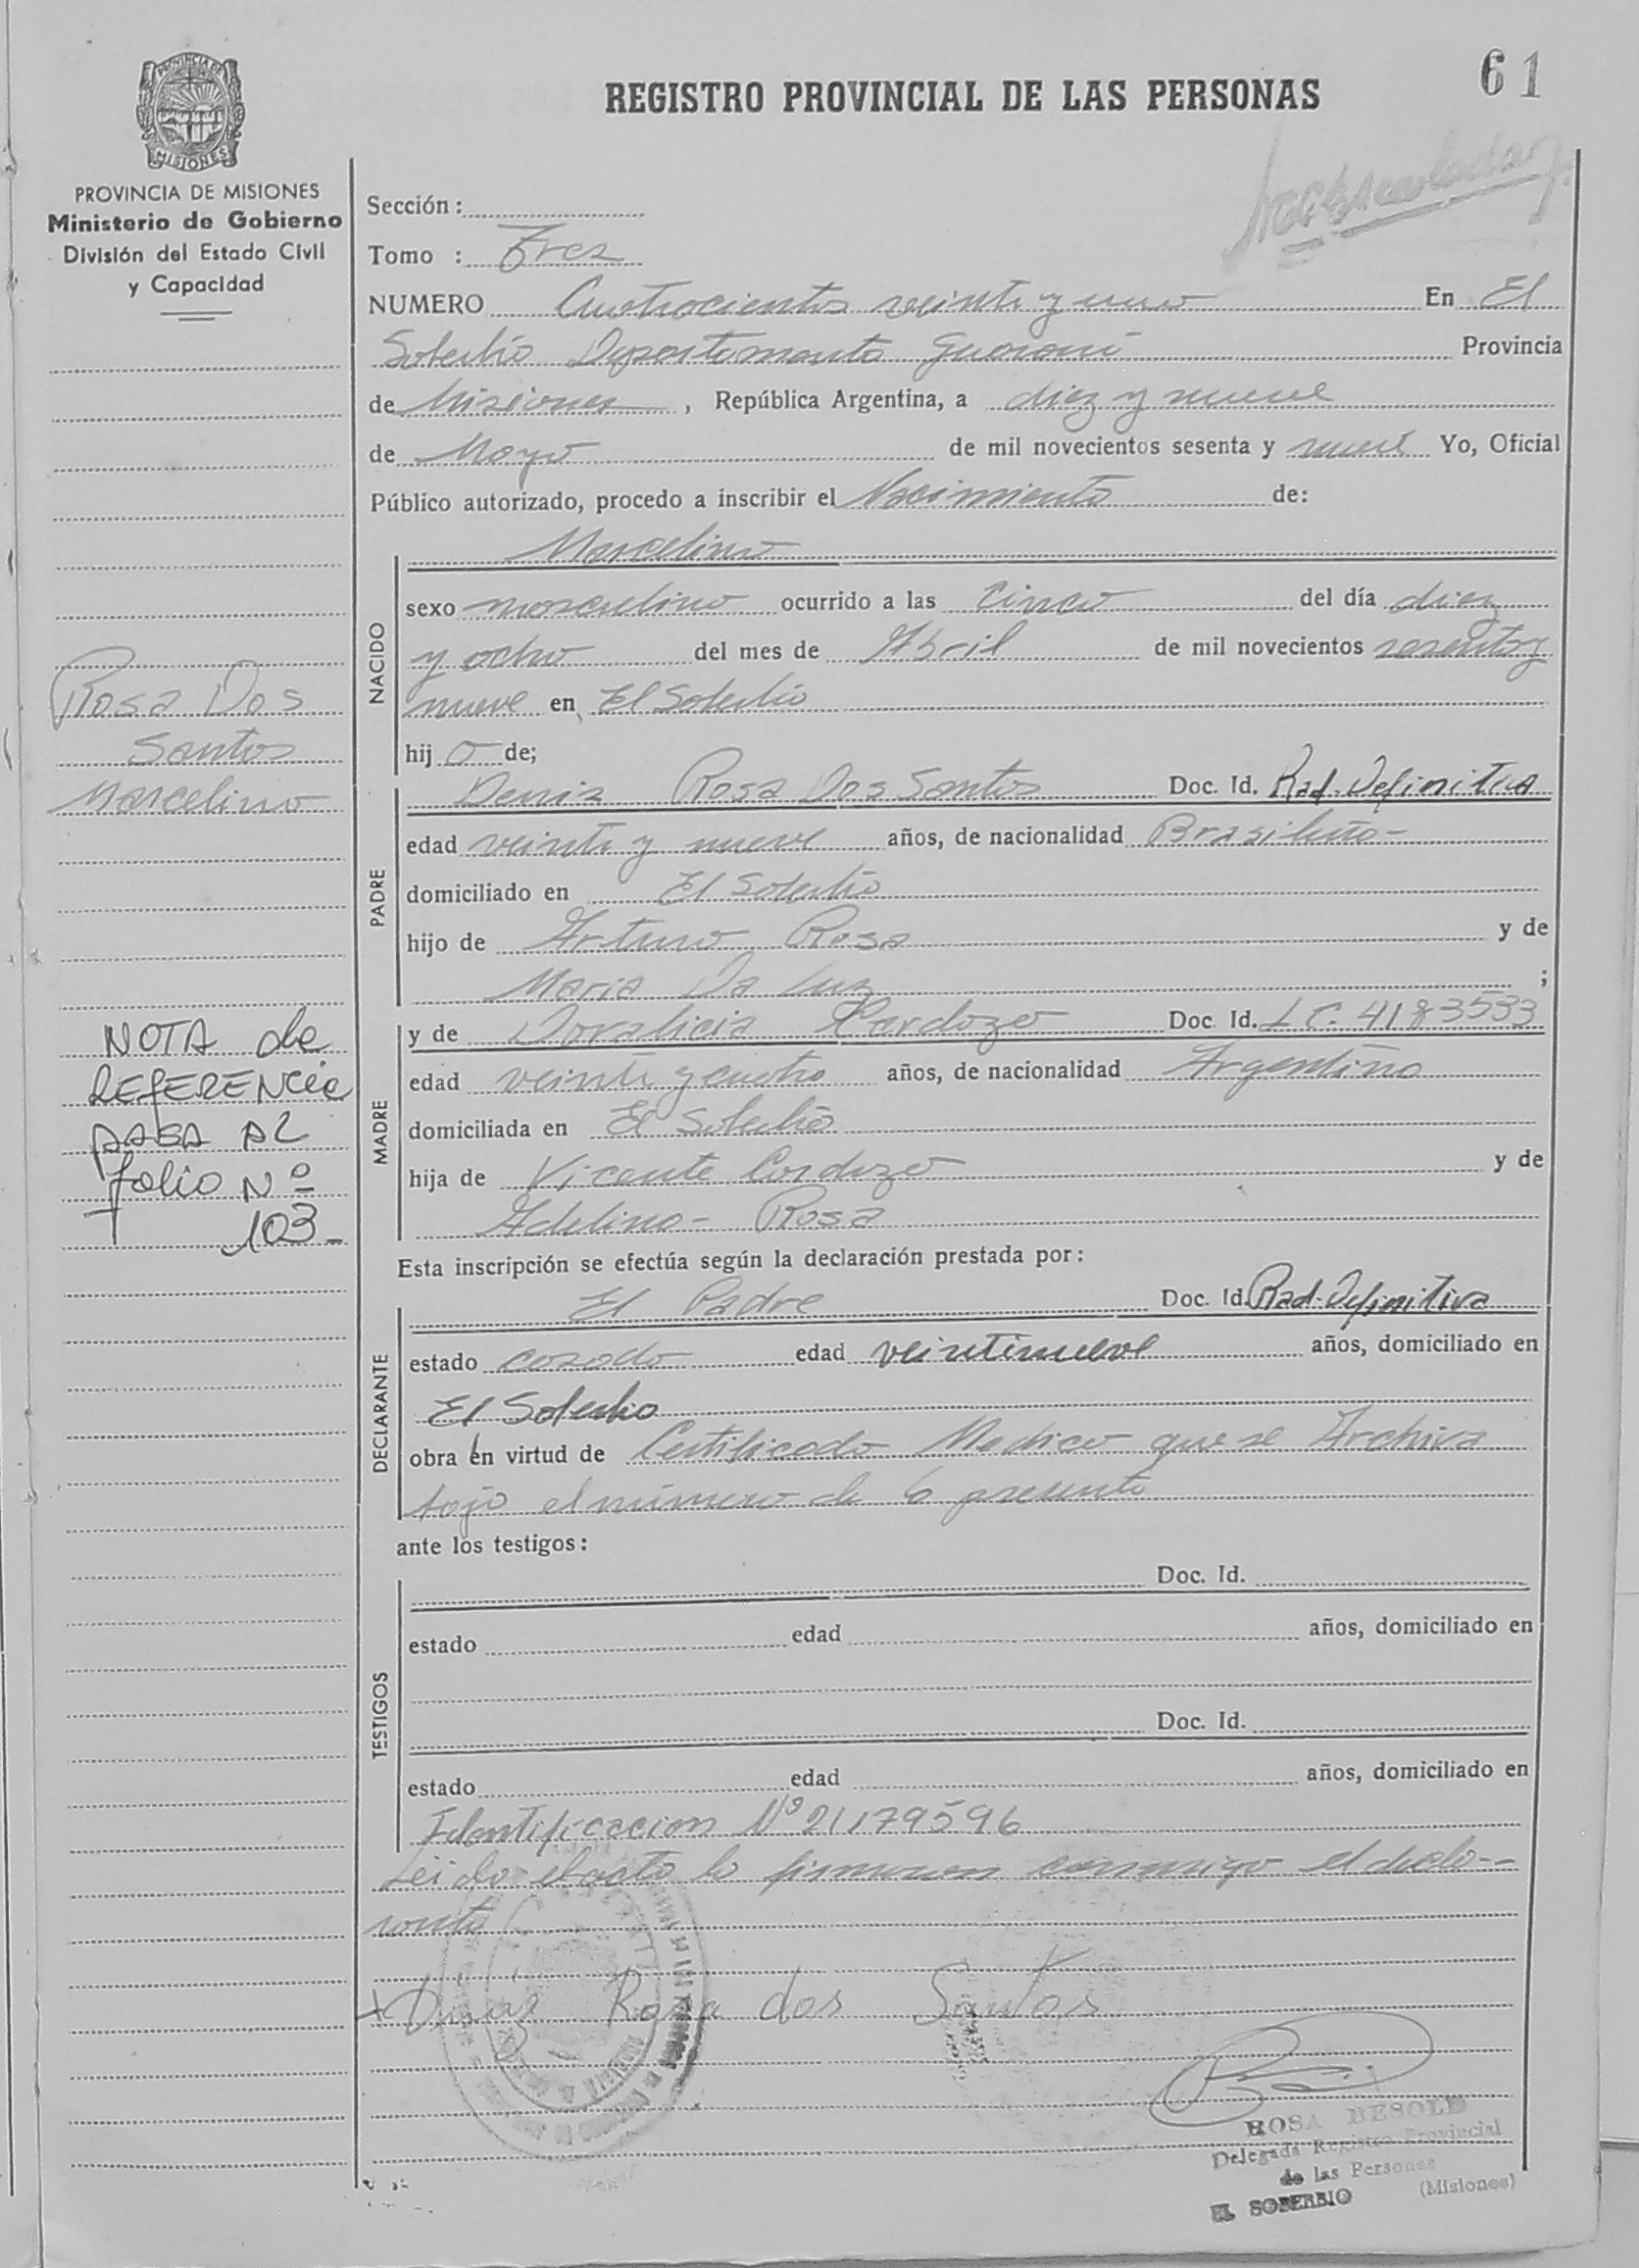 61
REGISTRO PROVINCIAL DE LAS PERSONAS
PROVINCIA DE MISIONES
PROVINCIA DE MISIONES
Ministerio de Gobierno
División del Estado Civil
y Capacidad
Sección:
Tomo : Tres
NUMERO Cuatrocientos veinte y uno En El
Soberbio Departamento Guarani Provincia
de Misiones, República Argentina, a diez y nueve
de Mayo de mil novecientos sesenta y nueve Yo, Oficial
Público autorizado, procedo a inscribir el Nacimiento de:
Marcelino
NACIDO
sexo masculino ocurrido a las cinco del día diez
y ocho del mes de Abril de mil novecientos sesenta y
nueve en El Soberbio
hijo de;
Rosa Dos
Santos
Marcelino
PADRE
Deniz Rosa Dos Santos Doc. Id. Rad. Definitiva
edad veinte y nueve años, de nacionalidad Brasileño-
domiciliado en El Soberbio
hijo de Arturo Rosa y de
Maria Da Luz ;
MADRE
y de Doralicia Cardozo Doc. Id. L.C. 4183533
edad veinte y cuatro años, de nacionalidad Argentina
domiciliada en El Soberbio
hija de Vicente Cardozo y de
Adelina- Rosa
NOTA de
REFERENCia
PASA AL
folio Nº
103-
Esta inscripción se efectúa según la declaración prestada por:
DECLARANTE
El Padre Doc. Id. Rad. Definitiva
estado casado edad veintinueve años, domiciliado en
El Soberbio
obra en virtud de Certificado Medico que se Archiva
bajo el número de la presente
ante los testigos:
TESTIGOS
Doc. Id.
estado edad años, domiciliado en
Doc. Id.
estado edad años, domiciliado en
Identificacion Nº 21179596
Leida el acta la firmaron conmigo el decla-
rante
Rosa dos Santos
ROSA BESOLD
Delegada Registro Provincial
de las Personas
EL SOBERBIO (Misiones)